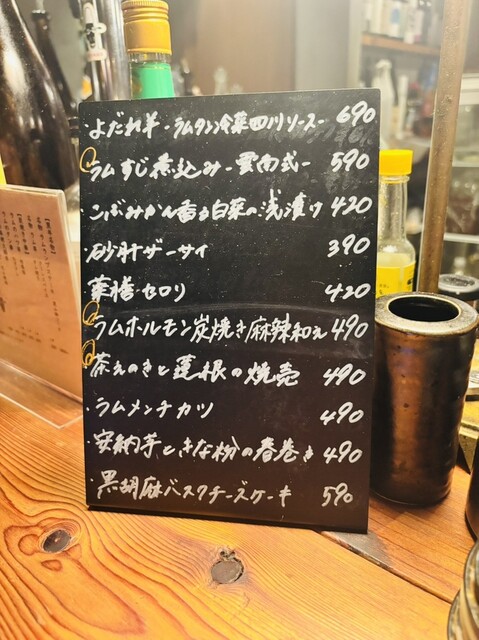 ・よだれ羊 - ラムタン冷菜四川ソース - 690
・ラムすじ煮込み - 雲南式 - 590
・こぶみかん香る白菜の浅漬け 420
・砂肝ザーサイ 390
薬膳セロリ 420
・ラムホルモン炭焼き麻辣和え 490
・茶えのきと蓮根の焼売 490
・ラムメンチカツ 490
・安納芋ときな粉の春巻き 490
・黒胡麻バスクチーズケーキ 590